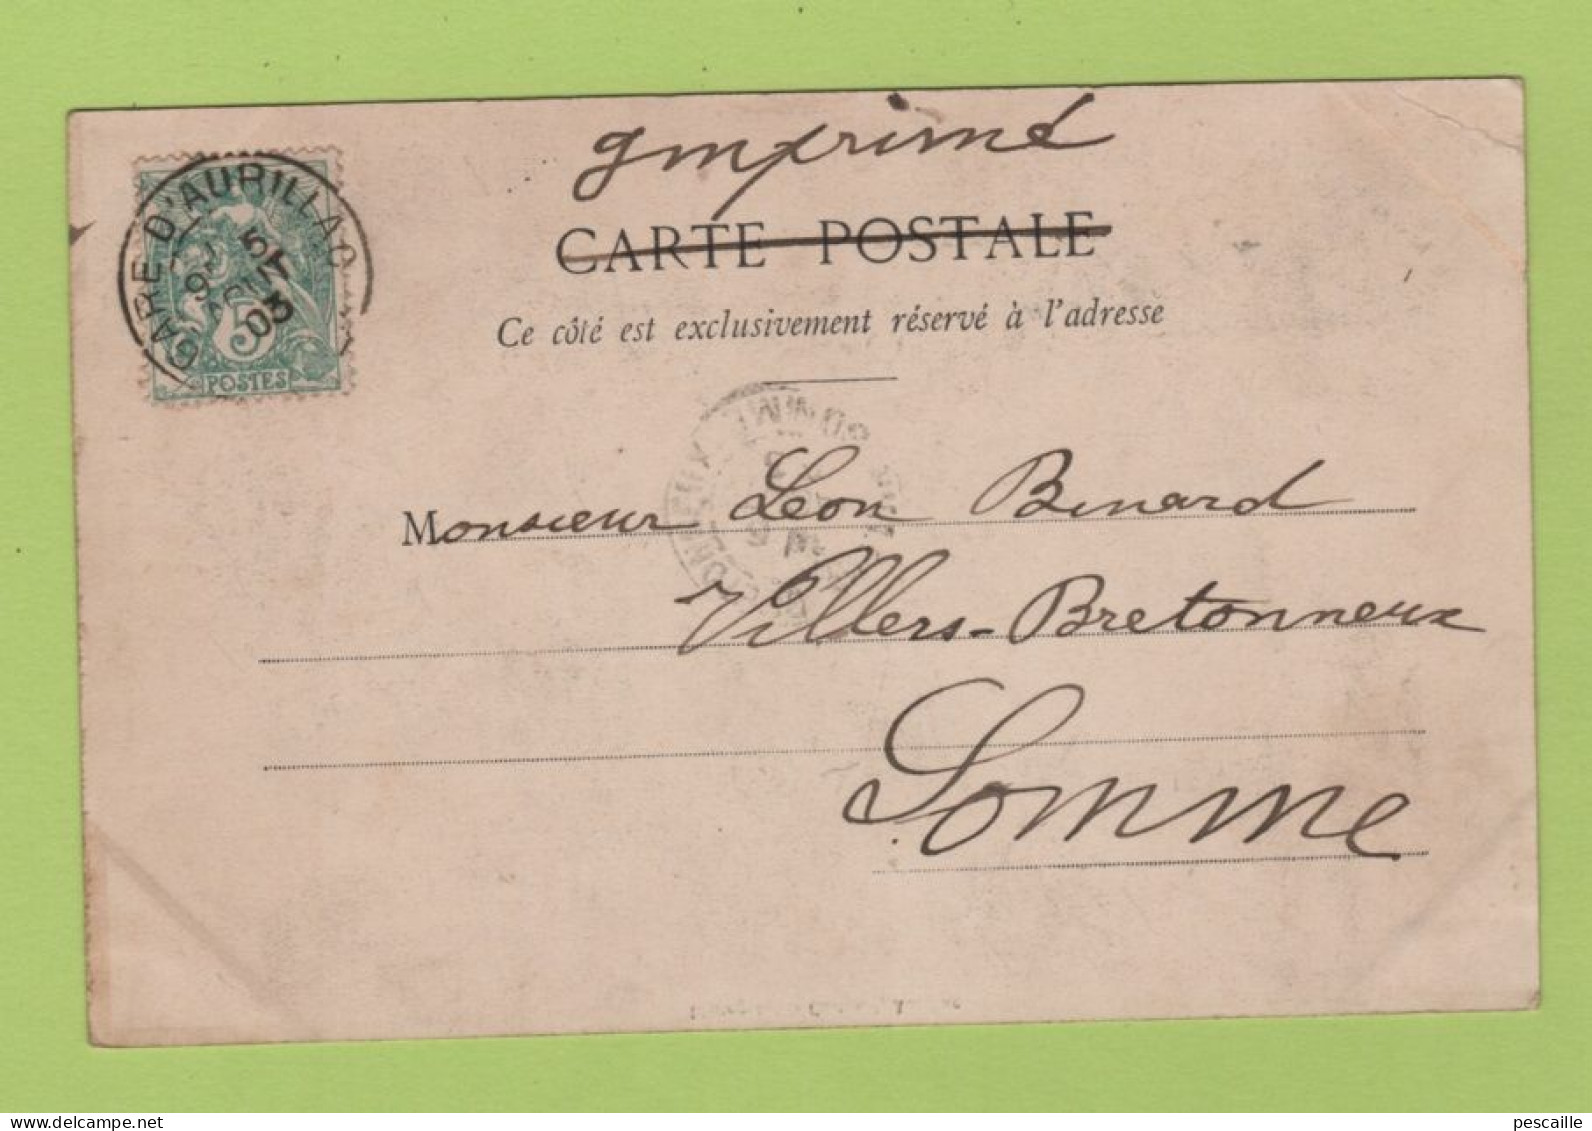 Imprimé
CARTE POSTALE
Ce côté est exclusivement réservé à l'adresse
GARE D'AURILLAC
5
03
5
POSTES
Monsieur Leon Binard
Villers-Bretonneux
Somme
pescaille